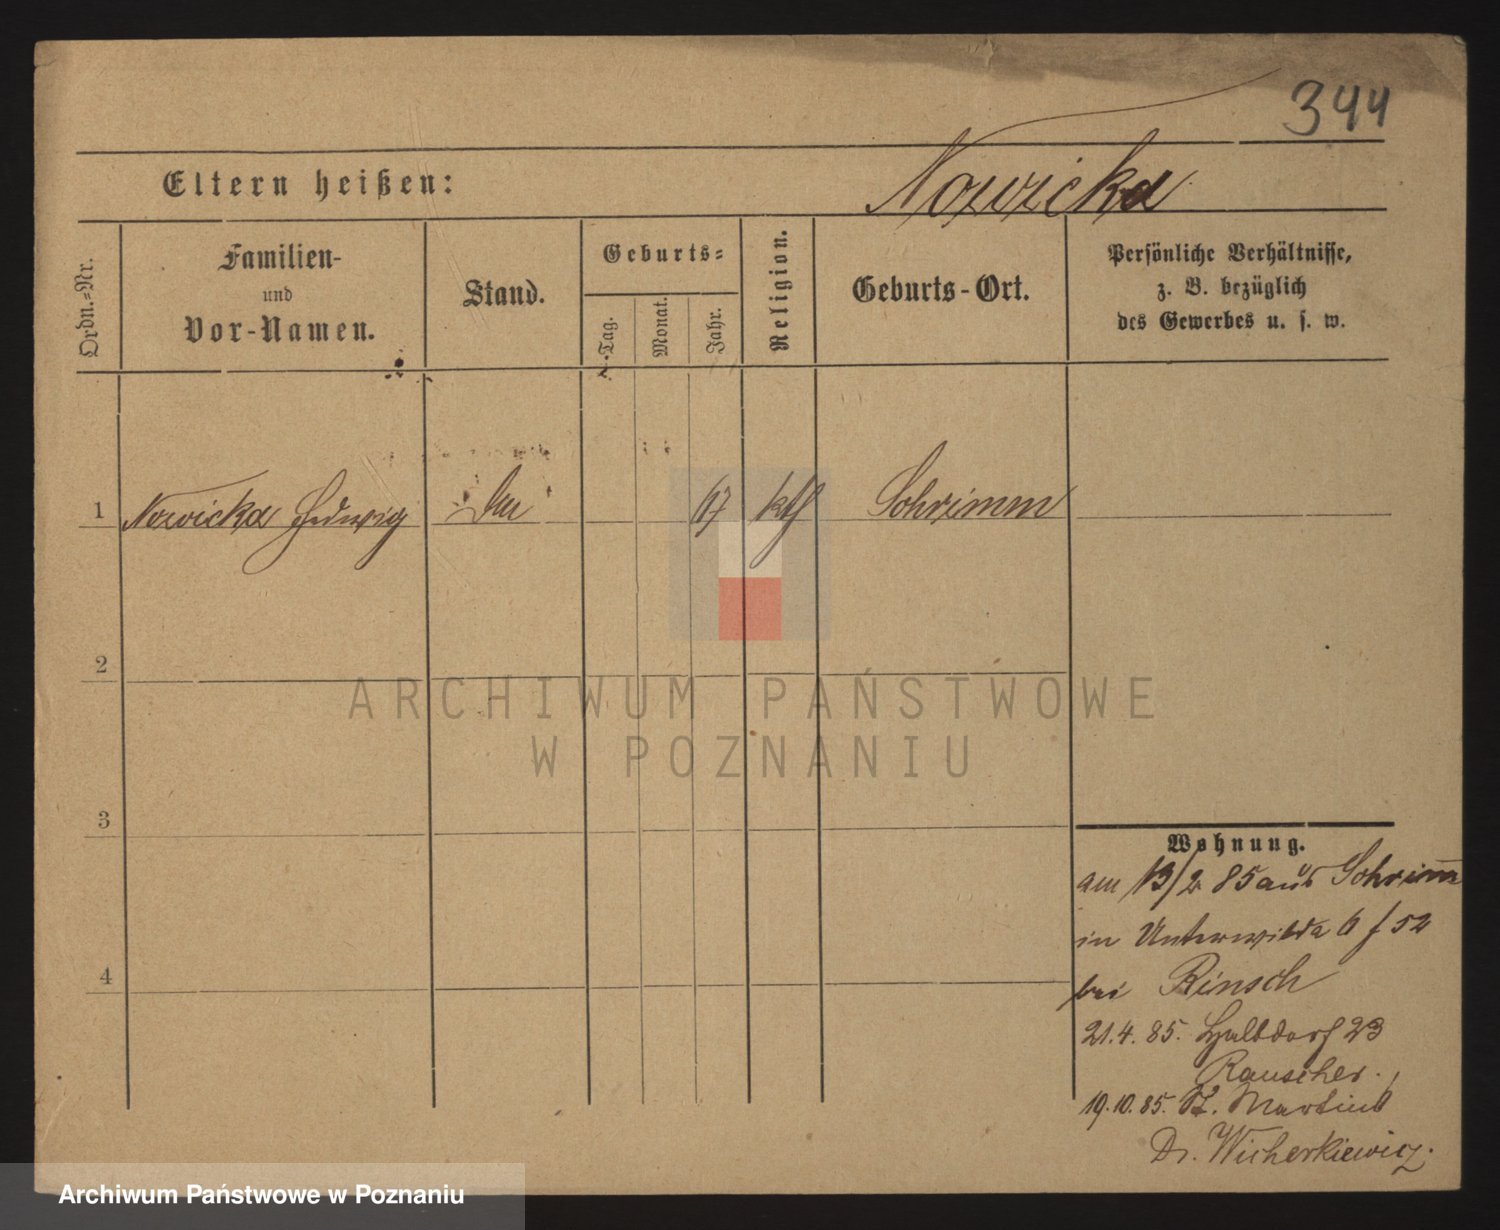 344
Eltern heißen:
Nowicka
Ordn.-Nr.
Familien-
und
Vor-Namen.
Stand.
Geburts-
Tag.
Monat.
Jahr.
Religion.
Geburts-Ort.
Persönliche Verhältnisse,
z. B. bezüglich
des Gewerbes u. s. w.
1 Nowicka Hedwig 67 kth Schrimm
2
3
4
Wohnung.
am 13/2 85 aus Schrimm
in Unterwilda 6 f 52
bei Rinsch
21.4.85. Halbdorf 23
Rauscher.
19.10.85. St. Martin 6
Dr. Wicherkiewicz.
ARCHIWUM PAŃSTWOWE
W POZNANIU
Archiwum Państwowe w Poznaniu